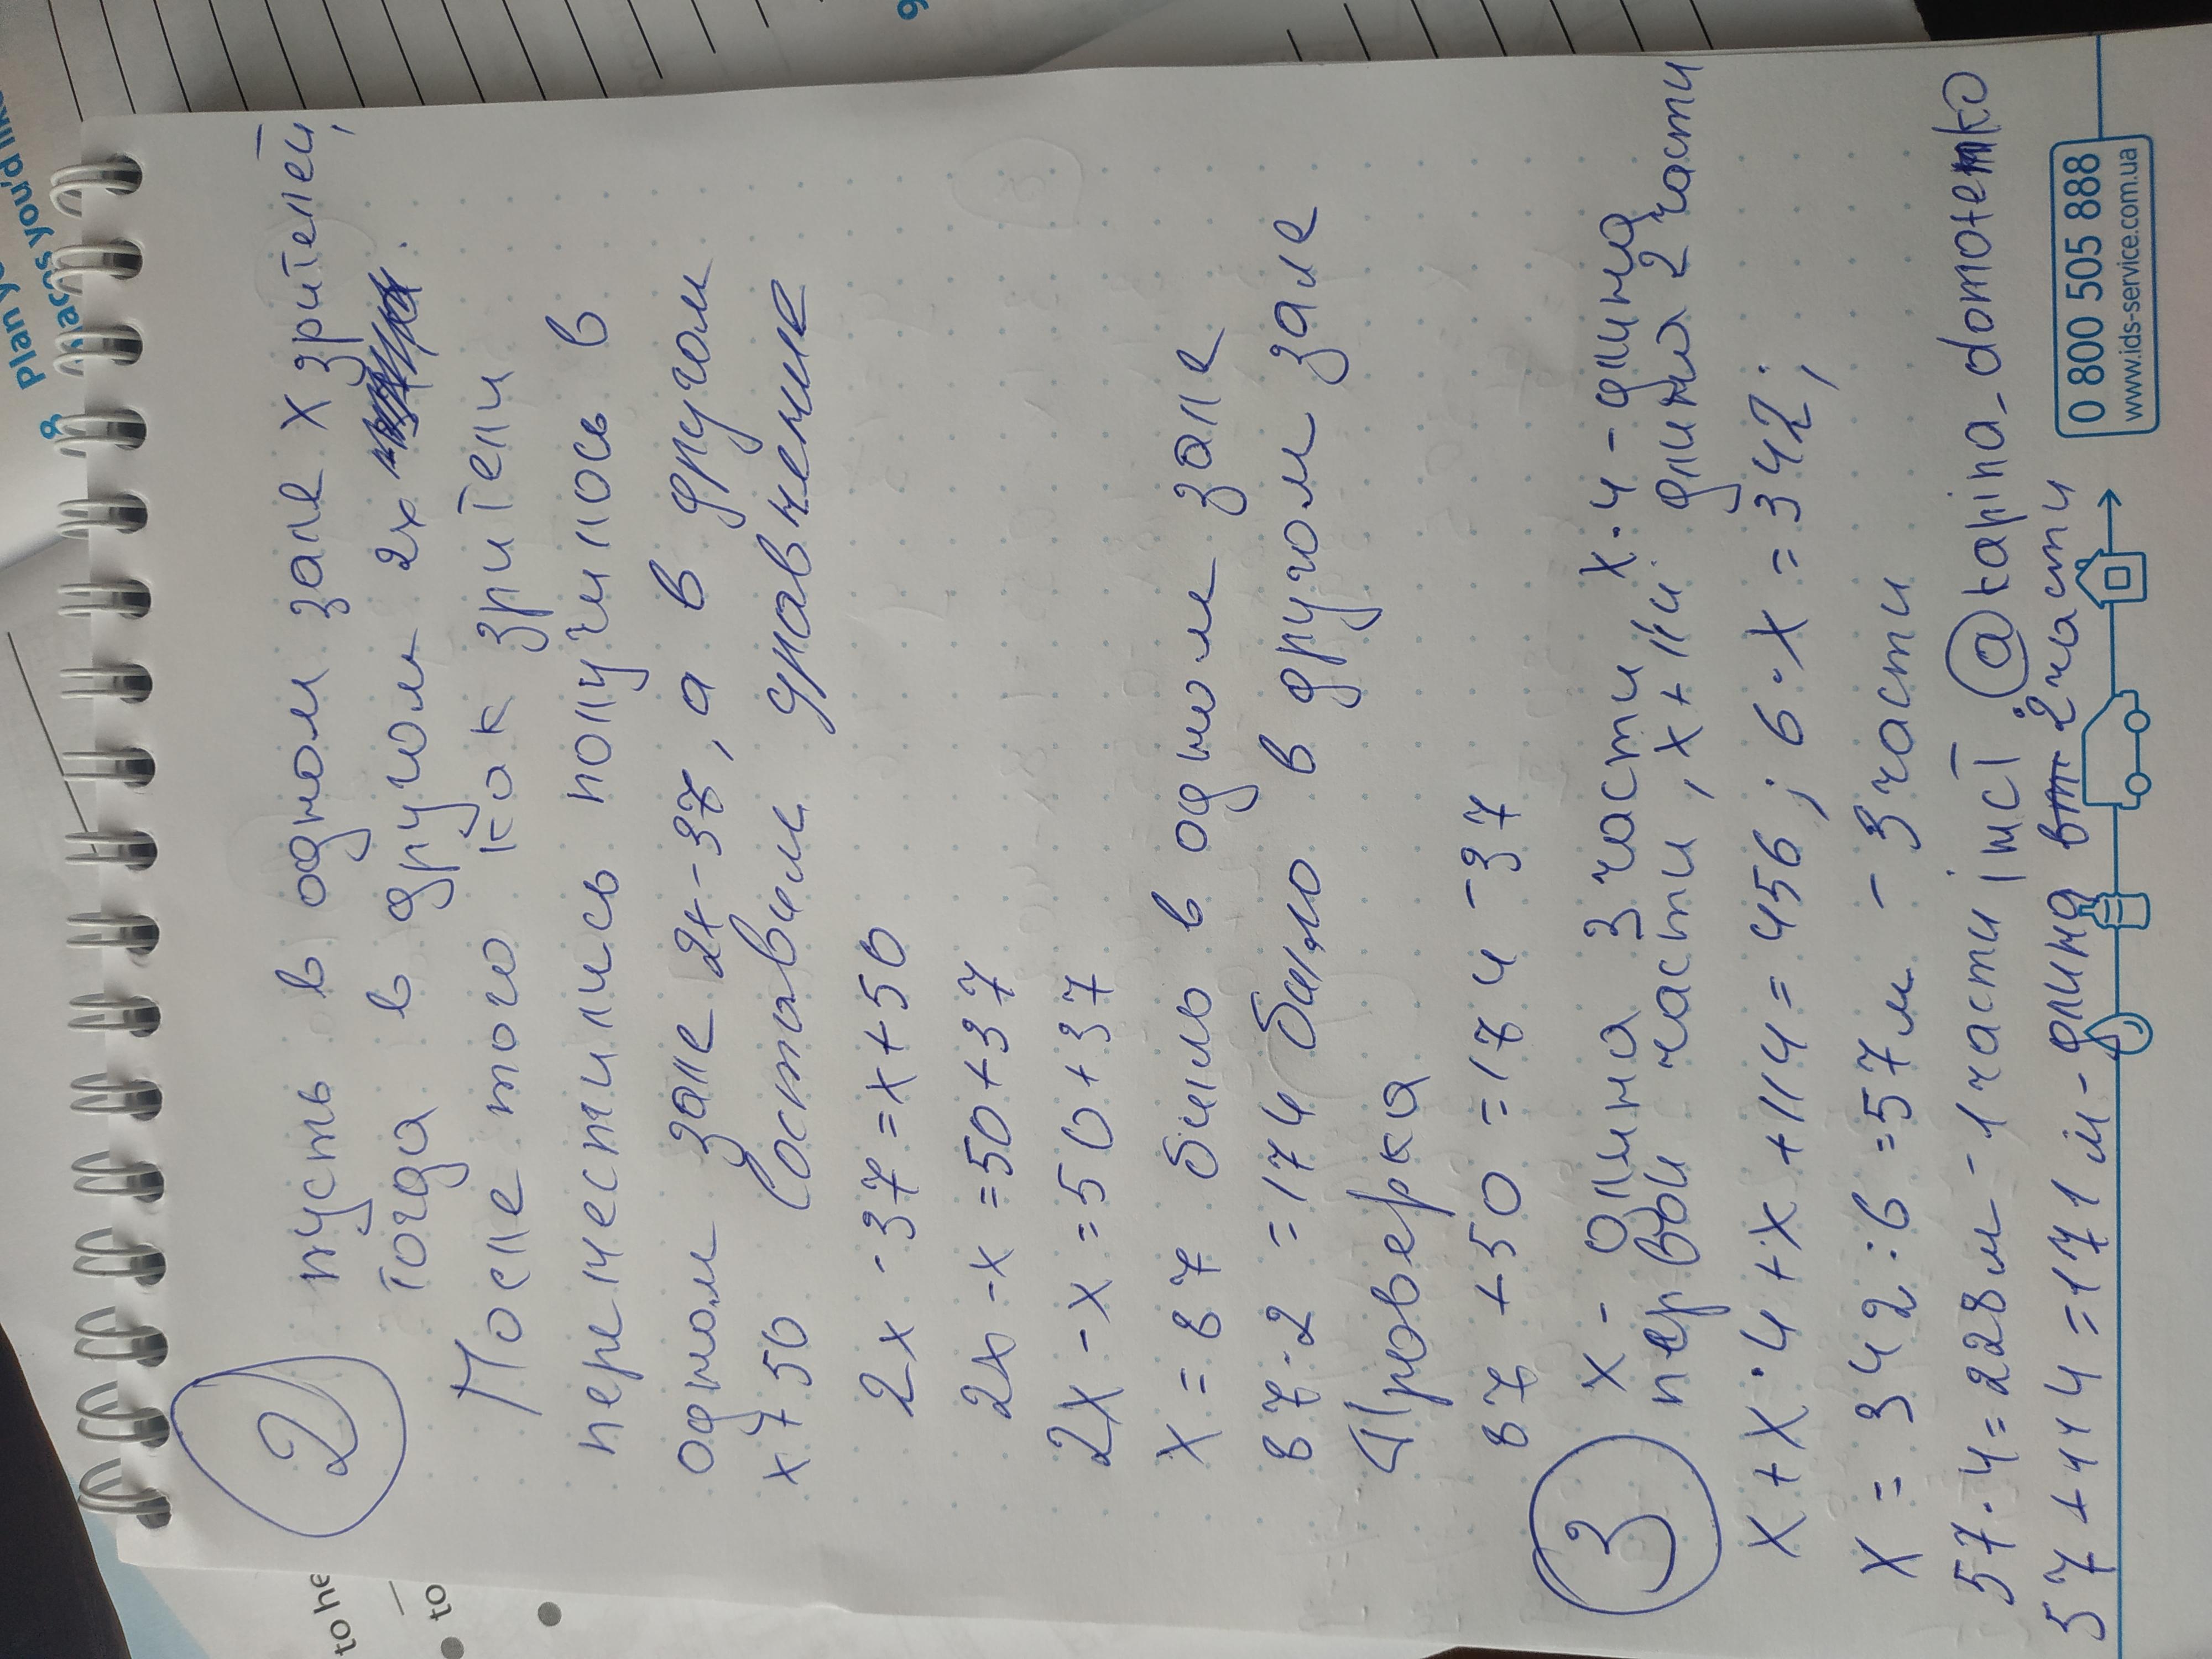 Plan yo
places you'd like
9
to he
to
2
пусть в одном зале x зрителей,
тогда в другом 2x
После того как зрители
переместились получилось в
одном зале 2x-37, а в другом
x+50 Составим уравнение
2x-37=x+50
2x-x=50+37
2x-x=50+37
x=87 было в одном зале
87·2=174 было в другом зале
Проверка
87+50=174-37
3
x- длина 3 части x·4-длина
первой части, x+114 длина 2 части
x+x·4+x+114=456; 6·x=342;
x=342:6=57м - 3 части
57·4=228м-1 части інст @karina_domotenko
57+114=171м-длина 2 части
0 800 505 888
www.ids-service.com.ua